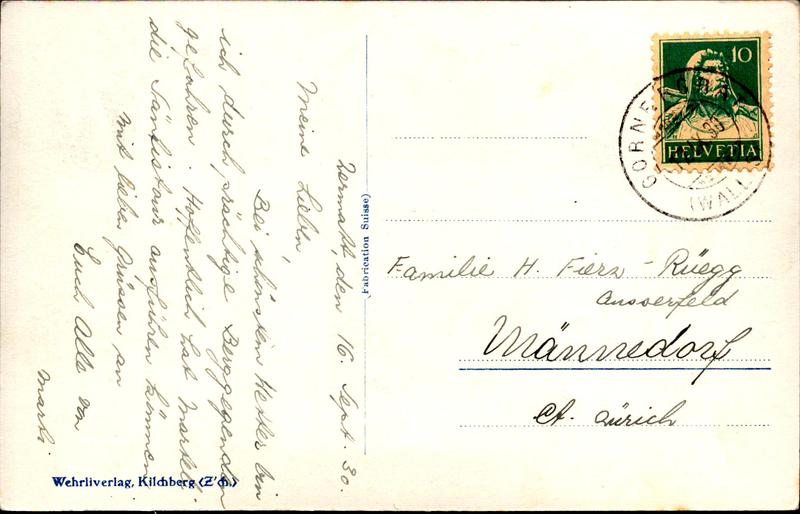 Zermatt, den 16. Sept. 30.
Meine Lieben,
Bei schönstem Wetter bin
ich durch prächtige Berggegenden
gefahren. Hoffentlich hat
die Säntistour ausführen können
mit lieben Grüssen an
Euch Alle von
Marti.
Wehrliverlag, Kilchberg (Z'ch.)
Fabrication Suisse)
10
HELVETIA
GORNERGRAT
(WALLIS)
Familie H. Fierz-Rüegg
Ausserfeld
Männedorf
Ct. Zürich